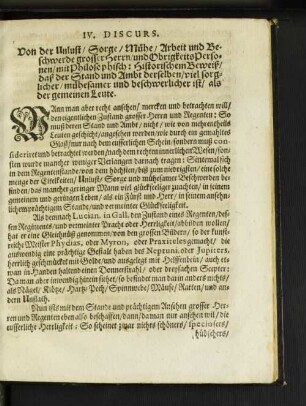 IV. DISCURS.
Von der Unlust / Sorge / Mühe / Arbeit und Be-
schwerde grosser Herrn und Obrigkeits Perso-
nen / mit Philosophisch: Historischem Beweiß /
daß der Stand und Ambt derselben / viel sorg-
licher / mühesamer und beschwerlicher ist / als
der gemeinen Leute.
WAnn man aber recht ansehen / mercken und betrachten will /
den eigentlichen Zustand grosser Herrn und Regenten: So
muß deren Stand und Ambt / nicht / wie von mehrentheils
Leuten geschicht / angesehen werden / wie durch ein gemahltes
Glaß / nur nach dem eusserlichen Schein / sondern muß con-
sideriret und betrachtet werden / nach dem rechten innerlichen Wesen / son-
sten wurde mancher weniger Verlangen darnach tragen: Sittemal sich
in dem Regentenstande / von dem höchsten / biß zum niedrigsten / eine solche
menge der Unlust / Sorge und mühesamer Beschwerden be-
finden / das mancher geringer Mann viel glückseliger zuachten / in seinem
gemeinen und geringen Leben / als ein Fürst und Herr / in seinem ansehen-
lichem prächtigem Stande / und vermeinter Glückseligkeit.
Als demnach Lucian. in Gall. den Zustand eines Regenten / des-
sen Regiments / und vermeinter Pracht oder Herrligkeit / abbilden wollen /
hat er eine Gleichnüß genommen / von den grossen Bildern / so der kunst-
reiche Meister Phydias, oder Myron, oder Praxiteles gemacht / die
auswendig eine prächtige Gestalt haben des Neptuni, oder Jupiters,
herrlich geschmücket mit Golde / und ausgelegt mit Helffenbein / auch et-
was in Handen haltend einen Donnerstrahl / oder dreyfachen Scepter:
Da man aber inwendig hinein siehet / so befindet man darin anders nichts /
als Nägel / Klötze / Hartz / Pech / Spinnwebe / Mäuse / Ratten / und an-
dern Unflath.
Eben ists mit dem Stande und prächtigem Ansehen grosser Her-
ren und Regenten eben also beschaffen / dann / da man nur ansehen wil / die
eusserliche Herrligkeit: So scheinet zwar nichts schöners / speciosers,
hübschers /